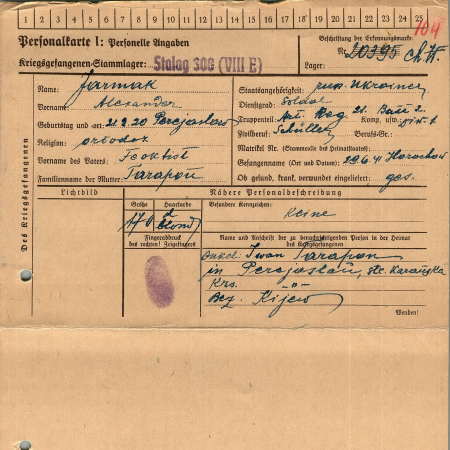 1 2 3 4 5 6 7 8 9 10 11 12 13 14 15 16 17 18 19 20 21 22 23 24 25
104
Personalkarte I: Personelle Angaben
Kriegsgefangenen-Stammlager: Stalag 300 (VIII E)
Beschriftung der Erkennungsmarke
Nr. 20395
Lager:
Des Kriegsgefangenen
Name: Jarmak
Vorname: Alexander
Geburtstag und -ort: 21.2.20 Perejaslow
Religion: ortodox
Vorname des Vaters: Feoktist
Familienname der Mutter: Tarapon
Staatsangehörigkeit: russ. Ukrainer
Dienstgrad: Soldat
Truppenteil: Komp. usw.
Zivilberuf: Schüller Berufs-Gr.:
Matrikel Nr. (Stammrolle des Heimatstaates):
Gefangennahme (Ort und Datum): 29.6.41 Horochow
Ob gesund, krank, verwundet eingeliefert: ges.
Lichtbild
Nähere Personalbeschreibung
Größe Haarfarbe
170 d blond
Fingerabdruck
des rechten! Zeigefingers
Besondere Kennzeichen:
keine
Name und Anschrift der zu benachrichtigenden Person in der Heimat
des Kriegsgefangenen
Onkel: Iwan Tarapon
in Perejaslau, str. Karanska
Krs. -"-
Bez. Kijew
Wenden!